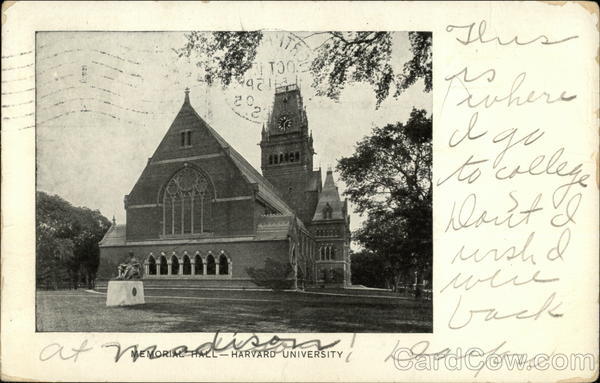 This
is where
I go
to college.
Don't I
wish I
were
back
at Madison! Don't you
MEMORIAL HALL—HARVARD UNIVERSITY
OCT
5 PM
05
CardCow.com